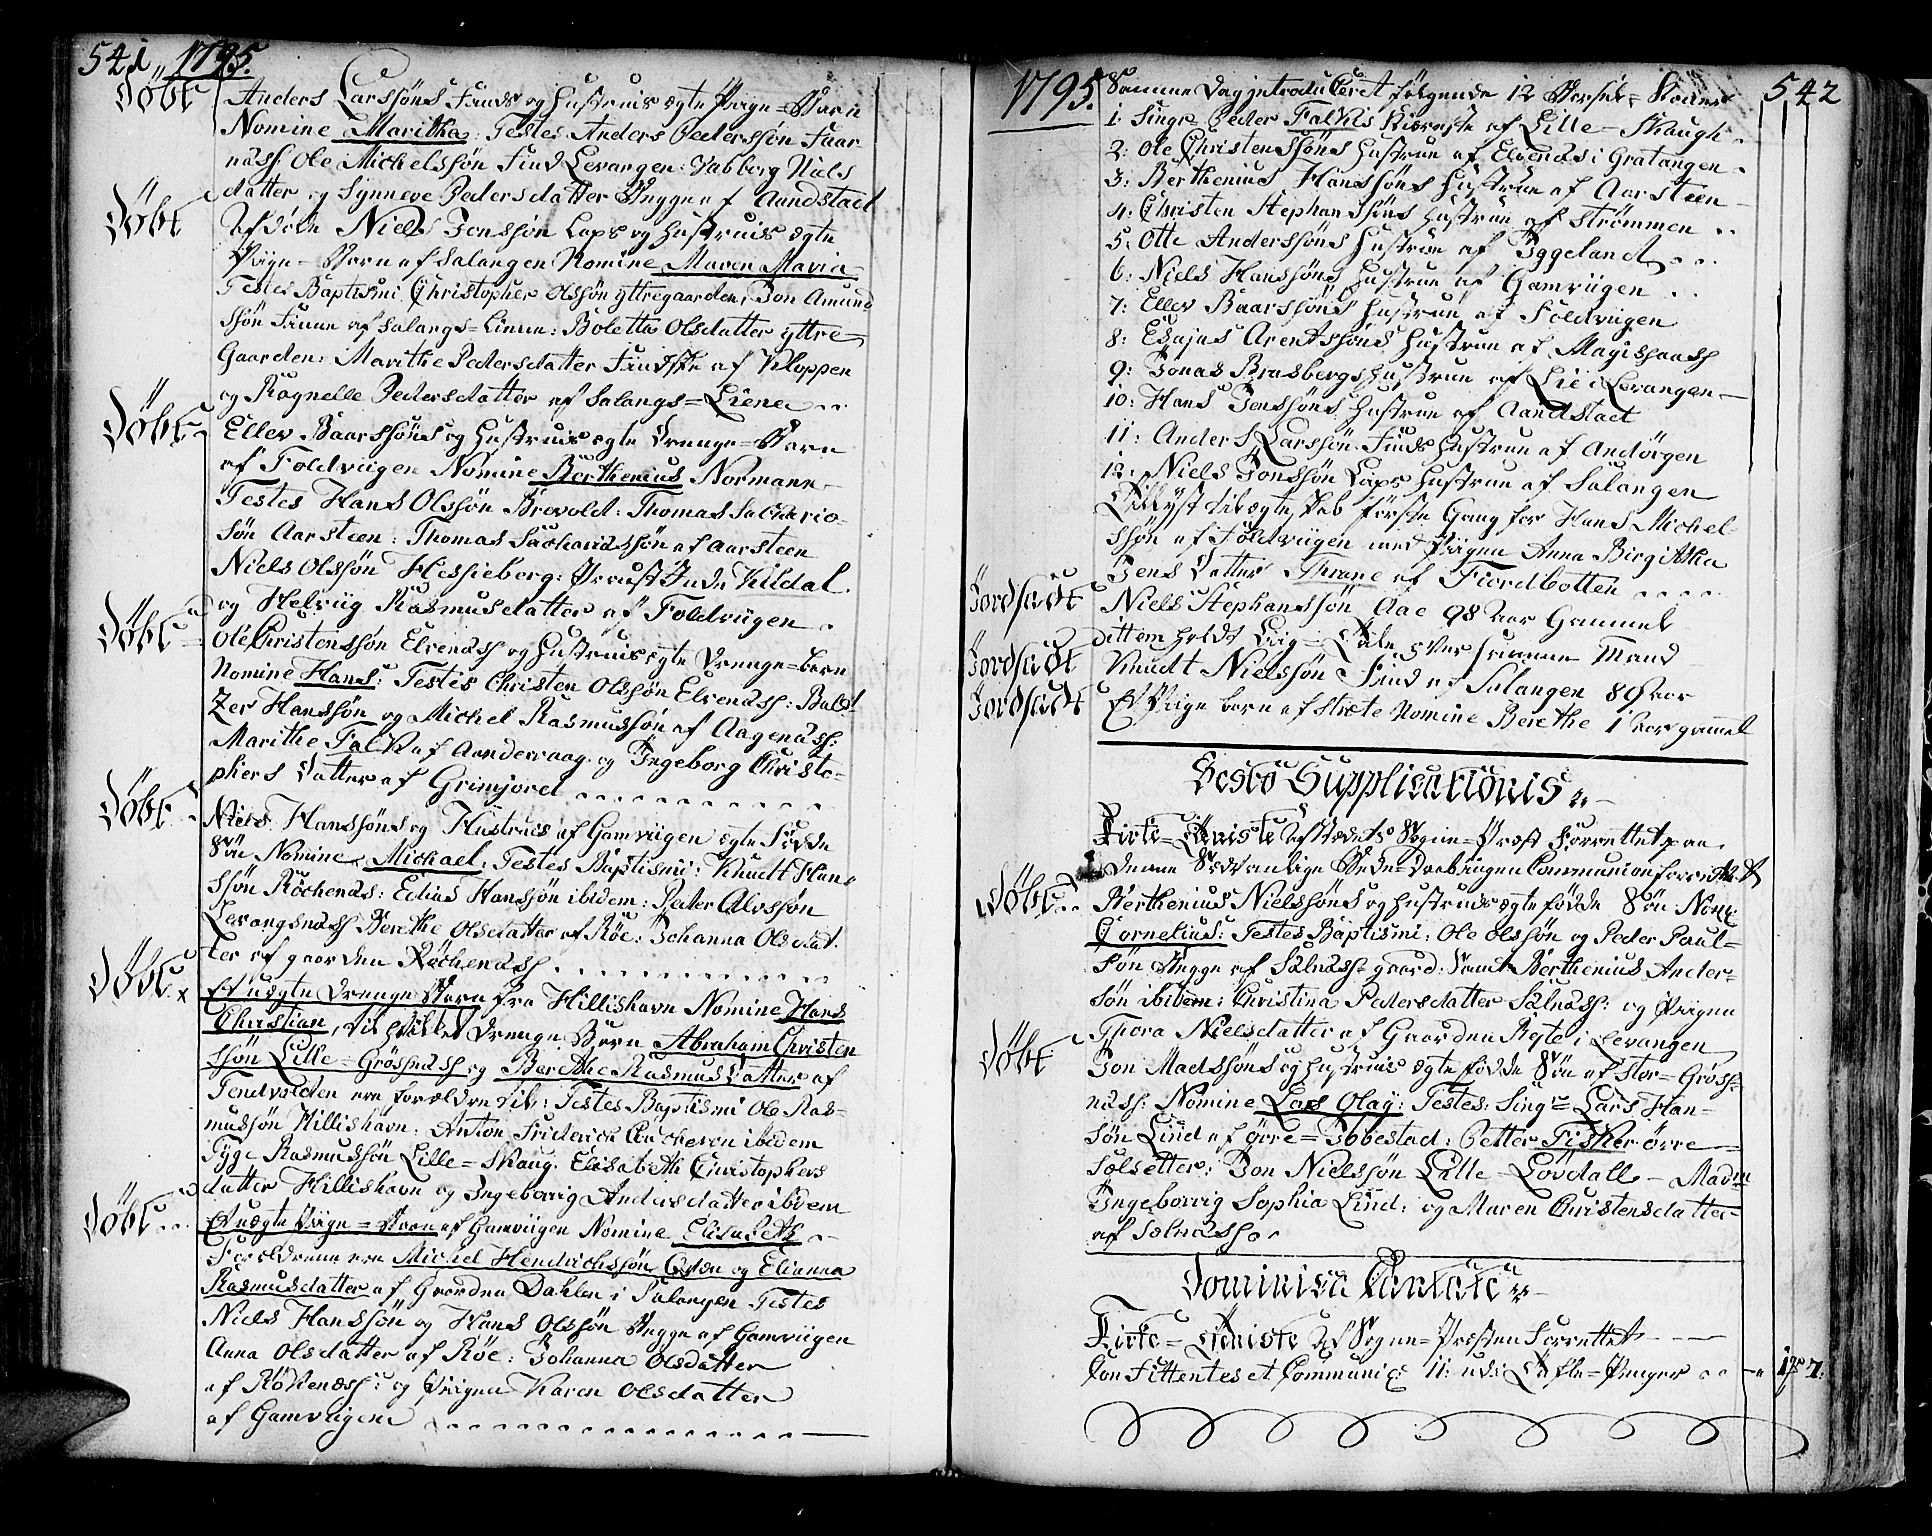 541 1795.
Döbt Anders Larssöns Finds og Hustrues ægte Piige=Barn
Nomine Maritha: Testes Anders Pederssön Faar
næss: Ole Michelssön Find Levangen: Vabborg Niels
datter og Synneve Pedersdatter Begge af Aandstad
Döbt Niels Jonssön Laps og Hustrues ægte
Piige=Barn af Salangen Nomine Maren Maria
Testes Baptismi Christopher Olssön yttregaarden, Jon Amund
ssön Finne af Salangs=Liene: Boletta Olsdatter yttre=
Gaarden: Marithe Pedersdatter Findske af Kloppen
og Ragnelle Pedersdatter af Salangs=Liene
Döbt Ellev Baarssöns og Hustrues ægte Drenge=Barn
af Foldviigen Nomine Berthenius Normann
Testes Hans Olssön Brevold: Thomas Sacharia-
sön Aarsteen: Thomas Sachariassön af Aarsteen
Niels Olssön Hessieberg: Kildal
og Helvig Rasmusdatter af Foldviigen
Döbt Ole Christenssön Elvenæss og Hustrues ægte Drenge=barn
Nomine Hans: Testis Christen Olssön Elvenæss: Balt
Zer Hanssön og Michel Rasmussön af Aagenæss:
Marithe Falk af Aanderaag og Ingeborg Christo-
phers Datter af Grimjord
Döbt Niels Hanssöns og Hustrues af Gamviigen ægte Födde
Sön Nomine Michael: Testes Baptismi: Knudt Han
ssön Röchenæs: Edias Hanssön ibidem: Peter Alvssön
Levangsnæss Berethe Olsdatter af Röe: Johanna Olsdat
ter af gaarden Röchenæss
Döbt Et uægte Drenge Barn fra Hillishavn Nomine Hans
Christian, til hvilket Drenge Barn Abraham Christen
ssön Lille=Grössnæss og Berethe Rasmus Datter af
Tendvolden ere forældre til: Testes Baptismi Ole Ras-
mussön Hillishavn: Anton Friderich ibidem
Tyge Rasmussön Lille=Skaug Elisabeth Christophers
datter Hillishavn og Ingeborrig Andersdatter ibidem
Döbt Et uægte Piige=Barn af Gamviigen Nomine Elisabeth
Forældrene ere Michel Hendrichssön Qvæn og Elianna
Rasmusdatter af Gaarden Dahlen i Salangen Testes
Niels Hanssön og Hans Olssön Begge af Gamviigen
Anna Olsdatter af Röe: Johanna Olsdatter
af Rökenæss: og Piigen Karen Olsdatter
af Gamviigen
1795. Samme Dag introduceret fölgende 12 Barsel=Koner 542
1: Singr Peder Falchs Kiereste af Lille=Skaugh
2: Ole Christenssöns Hustrue af Elvenæs i Gratangen
3: Berthenius Hanssöns Hustrue af Aarsteen
4: Christen Stephanssöns Hustrue af Strömmen
5: Otte Anderssöns Hustrue af Iggeland
6: Niels Hanssöns Hustrue af Gamviigen
7: Ellev Baarssöns Hustrue af Foldviigen
8: Esajas Arentssöns Hustrue af
9: Jonas Brasbergs Hustrue af Lie i Levangen
10: Hans Jenssöns Hustrue af Aandstad
11: Anders Larssön Finds Hustrue af Andörgen
12: Niels Jonssön Laps Hustrue af Salangen
Tillyst til ægteskab förste Gang for Hans Michel
ssön af Foldviigen med Piigen Anna Birgittha
Jens Datter Thrane af Fiordbotten
Jordsadt Niels Stephanssön Aae 98 Aar Gammel
ditt em holdt Liig=Tale over samme Mand
Jordsadt Knudt Nielssön Find af Salangen 89 aar
Jordsadt Et Piige barn af Stræte Nomine Berethe 1 aar gammel
Festo Supplicationis
Kirke=Tieniste af Stædets Sogne=Præst Forrettet paa
denne Sædvanlige Bede=Dag Communion forrettet
Döbt Berthenius Nielssöns og Hustrues ægte födde Sön Nom:
Cornelius: Testes Baptismi: Ole Olssön og Peder Paul=
sön Begge af Salnæss gaard: Samt Berthenius Ander=
sön ibidem: Christina Pedersdatter Salnæss: og Piigen
Thora Nielsdatter af Gaarden Rote i Levangen
Döbt Jon Madssöns og Hustrues ægte födde Sön af Stor=Gröss-
næss: Nomine Lars Olay: Testes: Singr Lars Han-
sön Lind af örre=Ibbestad: Petter Fisker örre
Solsetter: Jon Nielssön Lille=Lövdall=Madm
Ingeborrig Sophia Lind: og Maren Christensdatter
af Solnæss
Dominica Cantate
Kirke=Tieniste af Sogne=Præsten Forrettet
Confittentes et Communic: 11: udi Tafle=Penger 7: